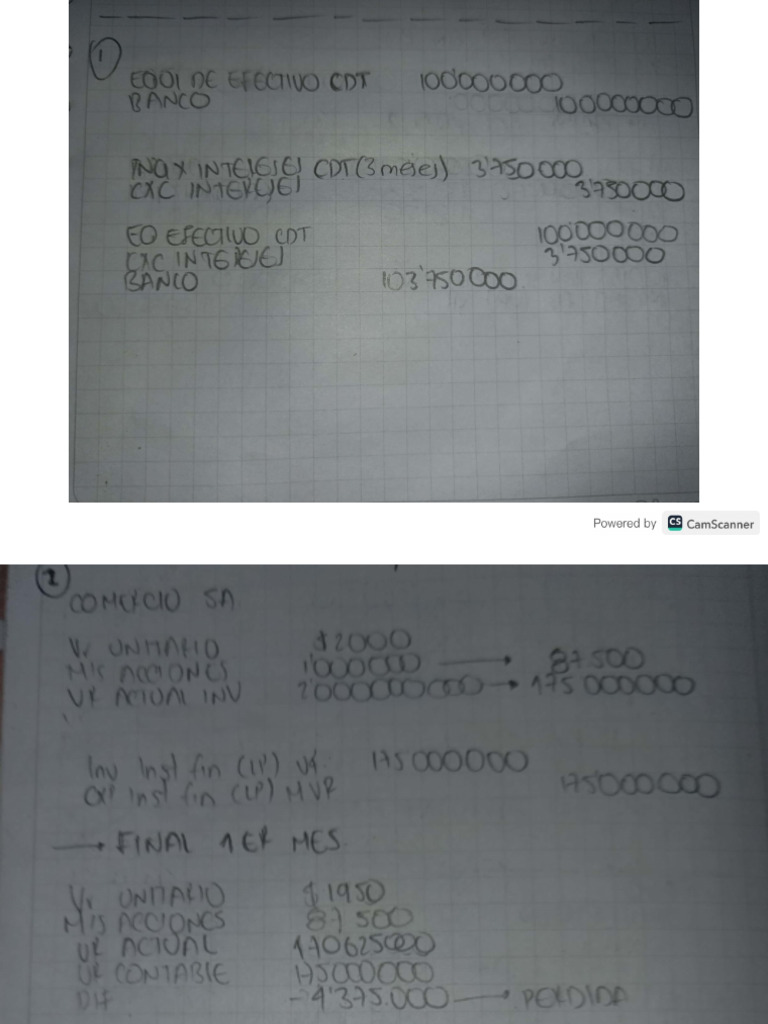 1
EQUI DE EFECTIVO CDT 100'000000
BANCO 100000000
ING X INTERESES CDT (3 meses) 3'750000
CXC INTERESES 3'750000
EQ EFECTIVO CDT 100'000000
CXC INTERESES 3'750000
BANCO 103'750000
Powered by CS CamScanner
2
COMERCIO SA
Vr UNITARIO $2000
MIS ACCIONES 1'000000 → 87.500
VR ACTUAL INV 2'000000000 → 175000000
Inv Inst fin (LP) 175000000
Inst fin (LP) MVR 175000000
→ FINAL 1ER MES
Vr UNITARIO $1950
MIS ACCIONES 87500
VR ACTUAL 170625000
VR CONTABLE 175000000
DIF -4'375.000 → PERDIDA